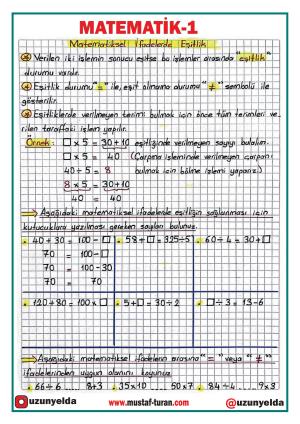 MATEMATİK-1
Matematiksel İfadelerde Eşitlik
Verilen iki işlemin sonucu eşitse bu işlemler arasında "eşitlik"
durumu vardır.
Eşitlik durumu "=" ile, eşit olmama durumu "≠" sembolü ile
gösterilir.
Eşitliklerde verilmeyen terimi bulmak için önce tüm terimleri ve-
rilen taraftaki işlem yapılır.
Örnek: □ x 5 = 30+10 eşitliğinde verilmeyen sayıyı bulalım.
□ x 5 = 40 (Çarpma işleminde verilmeyen çarpanı
40 ÷ 5 = 8 bulmak için bölme işlemi yaparız.)
8 x 5 = 30+10
40 = 40
Aşağıdaki matematiksel ifadelerde eşitliğin sağlanması için
kutucuklara yazılması gereken sayıları bulunuz.
40 + 30 = 100 - □ 58 + □ = 325÷5 60÷4 = 30+□
70 = 100-□
70 = 100-30
70 = 70
120+80 = 100x□ 5+□ = 30÷2 □÷3 = 13-6
Aşağıdaki matematiksel ifadelerin arasına "=" veya "≠"
ifadelerinden uygun olanını koyunuz.
66÷6 ..... 8+3 35x10 ..... 50x7 84÷4 ..... 9x3
uzunyelda www.mustaf-turan.com @uzunyelda